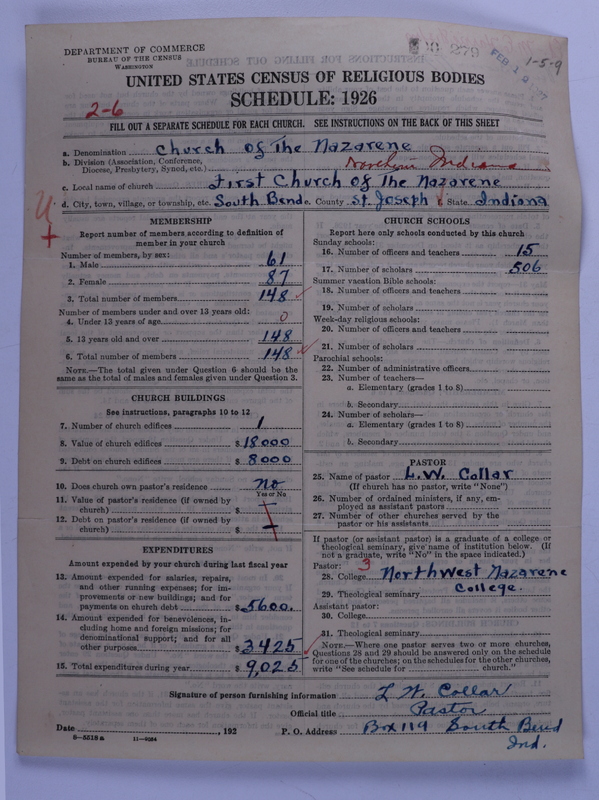 DEPARTMENT OF COMMERCE
BUREAU OF THE CENSUS
WASHINGTON
279
FEB 1
1-5-9
UNITED STATES CENSUS OF RELIGIOUS BODIES
SCHEDULE: 1926
2-6
FILL OUT A SEPARATE SCHEDULE FOR EACH CHURCH. SEE INSTRUCTIONS ON THE BACK OF THIS SHEET
a. Denomination Church of The Nazarene
b. Division (Association, Conference,
Diocese, Presbytery, Synod, etc.) Northern Indiana
c. Local name of church First Church of The Nazarene
d. City, town, village, or township, etc. South Bend e. County St. Joseph f. State Indiana
MEMBERSHIP
Report number of members according to definition of
member in your church
Number of members, by sex:
1. Male 61
2. Female 87
3. Total number of members 148
Number of members under and over 13 years old:
4. Under 13 years of age 0
5. 13 years old and over 148
6. Total number of members 148
NOTE.—The total given under Question 6 should be the
same as the total of males and females given under Question 3.
CHURCH BUILDINGS
See instructions, paragraphs 10 to 12
7. Number of church edifices 1
8. Value of church edifices $ 18000
9. Debt on church edifices $ 8000
10. Does church own pastor's residence no
Yes or No
11. Value of pastor's residence (if owned by
church) $
12. Debt on pastor's residence (if owned by
church) $
EXPENDITURES
Amount expended by your church during last fiscal year
13. Amount expended for salaries, repairs,
and other running expenses; for im-
provements or new buildings; and for
payments on church debt $ 5600.
14. Amount expended for benevolences, in-
cluding home and foreign missions; for
denominational support; and for all
other purposes $ 3425
15. Total expenditures during year $ 9,025
CHURCH SCHOOLS
Report here only schools conducted by this church
Sunday schools:
16. Number of officers and teachers 15
17. Number of scholars 506
Summer vacation Bible schools:
18. Number of officers and teachers
19. Number of scholars
Week-day religious schools:
20. Number of officers and teachers
21. Number of scholars
Parochial schools:
22. Number of administrative officers
23. Number of teachers—
a. Elementary (grades 1 to 8)
b. Secondary
24. Number of scholars—
a. Elementary (grades 1 to 8)
b. Secondary
PASTOR
25. Name of pastor L.W. Collar
(If church has no pastor, write "None")
26. Number of ordained ministers, if any, em-
ployed as assistant pastors
27. Number of other churches served by the
pastor or his assistants
If pastor (or assistant pastor) is a graduate of a college or
theological seminary, give name of institution below. (If
not a graduate, write "No" in the space indicated.)
Pastor: 3
28. College Northwest Nazarene
29. Theological seminary College.
Assistant pastor:
30. College
31. Theological seminary
NOTE.—Where one pastor serves two or more churches,
Questions 28 and 29 should be answered only on the schedule
for one of the churches; on the schedules for the other churches,
write "See schedule for church."
Signature of person furnishing information L W. Collar
Official title Pastor
Date , 192 P. O. Address Box 119 South Bend
Ind.
8—5518a 11—9264